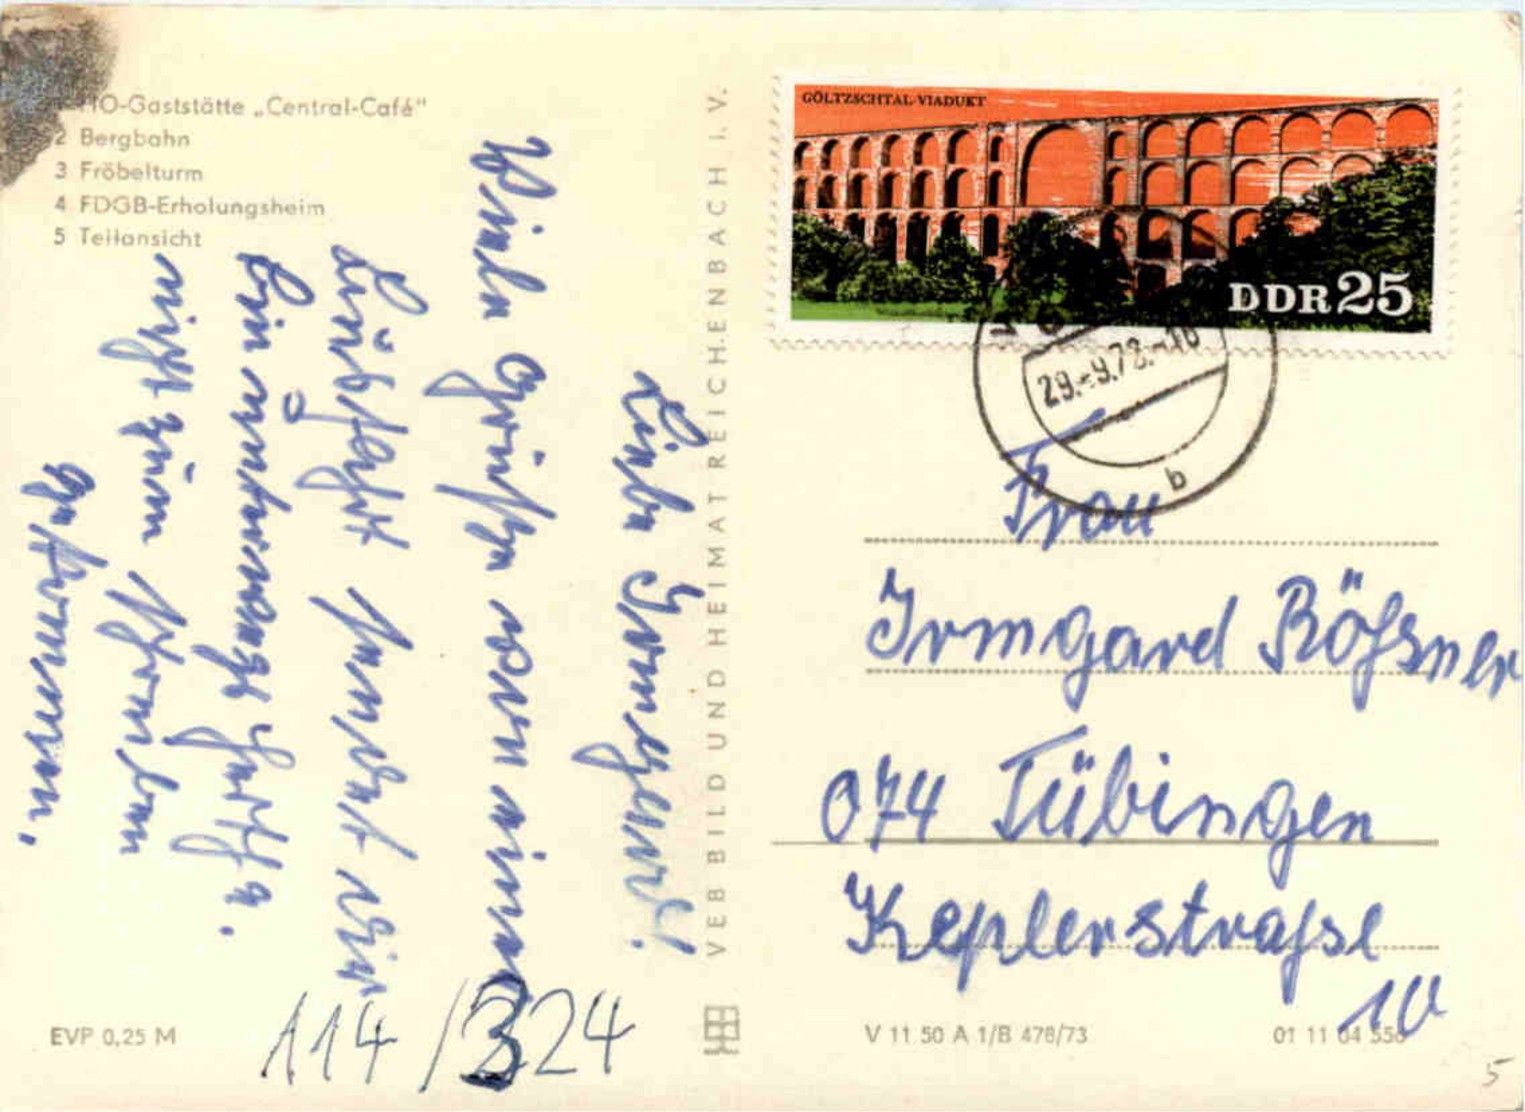 1 HO-Gaststätte „Central-Café“
2 Bergbahn
3 Fröbelturm
4 FDGB-Erholungsheim
5 Teilansicht
Liebe Irmgard!
Viele Grüße von einer
sendet Dir
Bin unterwegs Hertha.
nicht zum Schreiben
gekommen.
EVP 0,25 M
114/324
VEB BILD UND HEIMAT REICHENBACH I. V.
GÖLTZSCHTAL-VIADUKT
DDR 25
29.-9.78.-10
b
Frau
Irmgard Rößner
074 Tübingen
Keplerstraße
10
V 11 50 A 1/B 478/73
01 11 04 556
5